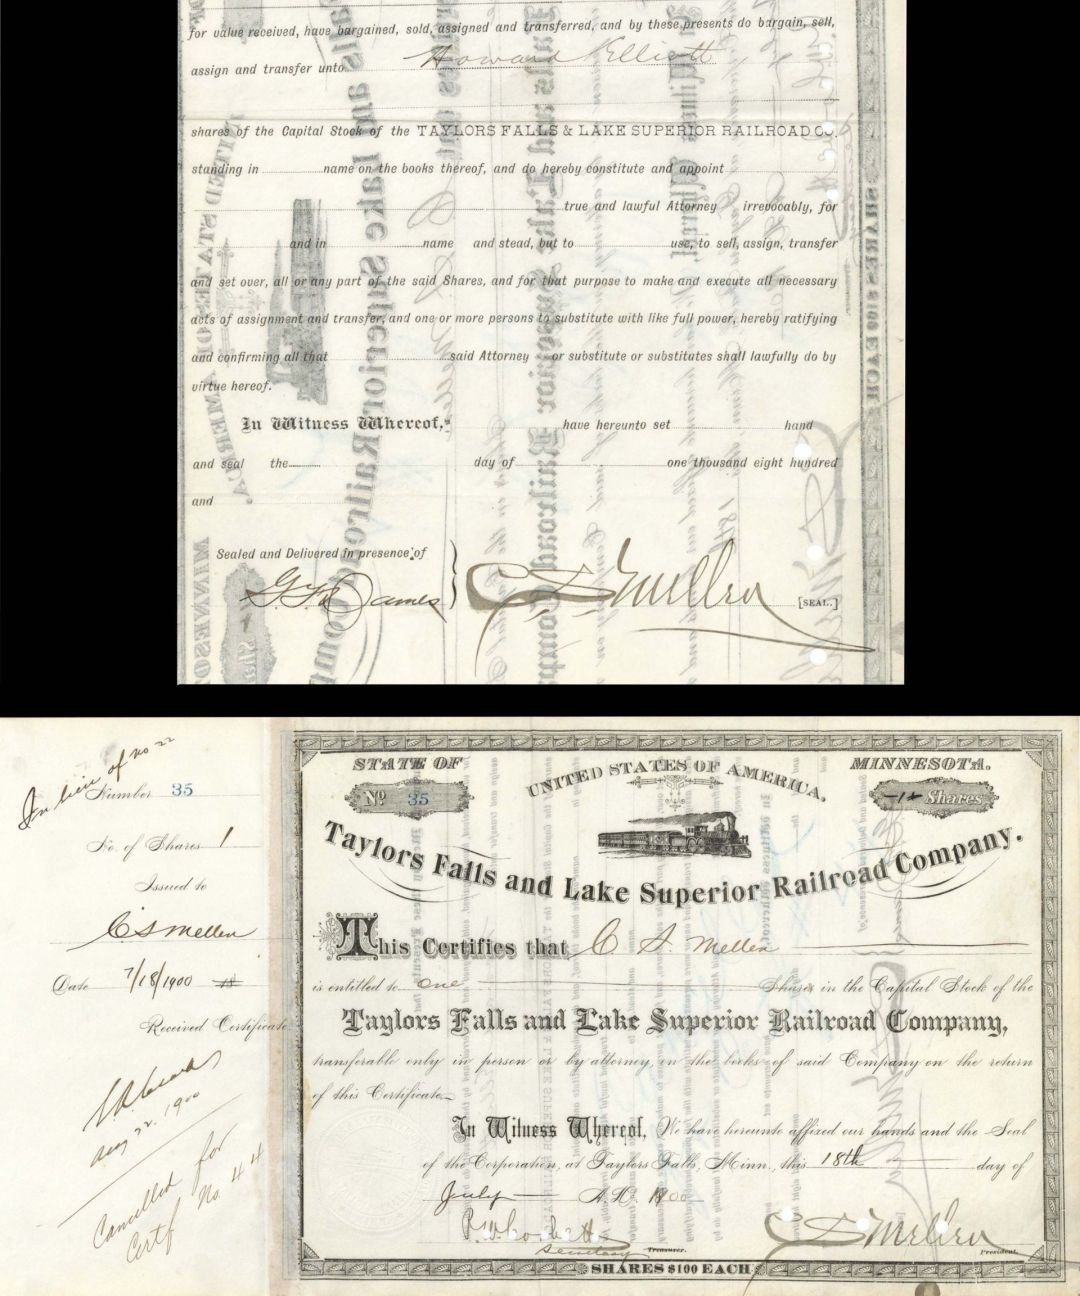 for value received, have bargained, sold, assigned and transferred, and by these presents do bargain, sell,
assign and transfer unto Howard Elliott
shares of the Capital Stock of the TAYLORS FALLS & LAKE SUPERIOR RAILROAD CO.
standing in name on the books thereof, and do hereby constitute and appoint
true and lawful Attorney irrevocably, for
and in name and stead, but to use, to sell, assign, transfer
and set over, all or any part of the said Shares, and for that purpose to make and execute all necessary
acts of assignment and transfer, and one or more persons to substitute with like full power, hereby ratifying
and confirming all that said Attorney or substitute or substitutes shall lawfully do by
virtue hereof.
In Witness Whereof, have hereunto set hand
and seal the day of one thousand eight hundred
and
Sealed and Delivered in presence of
James C S Mellen [SEAL.]
In lieu of No 22
Number 35
No. of Shares 1
Issued to
C S Mellen
Date 7/18/1900 18
Received Certificate
Aug 22. 1900
Cancelled for
Certf No. 44
STATE OF MINNESOTA.
UNITED STATES OF AMERICA.
No 35
-1- Shares
Taylors Falls and Lake Superior Railroad Company.
This Certifies that C S Mellen
is entitled to one Shares in the Capital Stock of the
Taylors Falls and Lake Superior Railroad Company,
transferable only in person or by attorney, on the books of said Company on the return
of this Certificate
In Witness Whereof, We have hereunto affixed our hands and the Seal
of the Corporation, at Taylors Falls, Minn., this 18th day of
July A.D. 1900
Secretary Treasurer.
C S Mellen
President.
SHARES $100 EACH